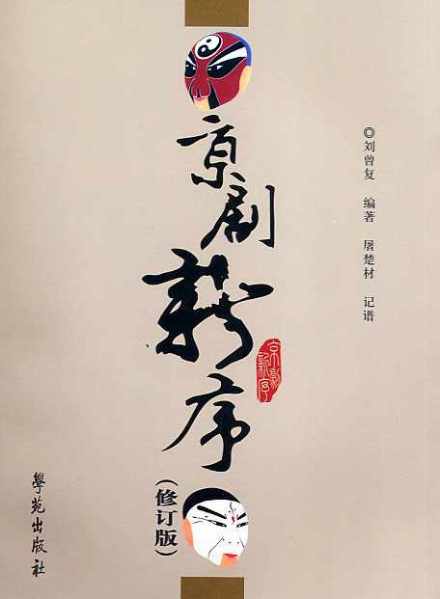 ◎刘曾复 编著 屠楚材 记谱
京剧新序
京剧新序
（修订版）
學苑出版社